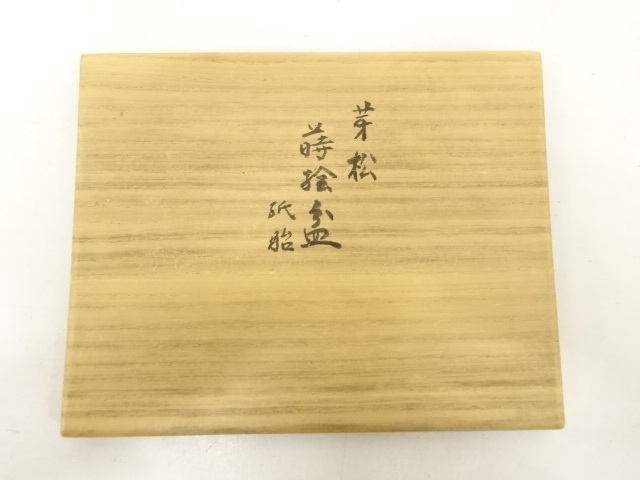 芽松
蒔絵盆
紙胎